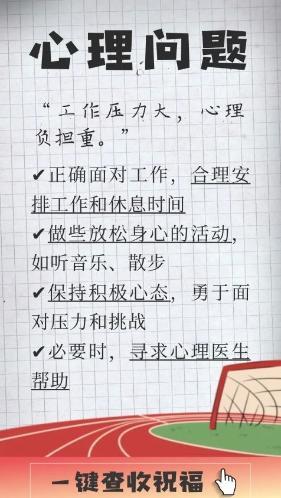 心理问题
“工作压力大，心理
负担重。”
✔正确面对工作，合理安
排工作和休息时间
✔做些放松身心的活动，
如听音乐、散步
✔保持积极心态，勇于面
对压力和挑战
✔必要时，寻求心理医生
帮助
一键查收祝福